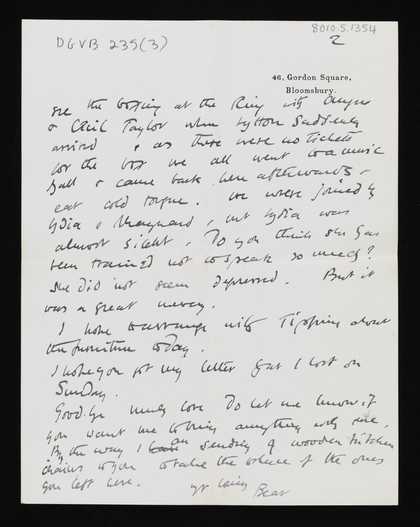 DGVB 239(3)
8010.5.1354
2
46, Gordon Square,
Bloomsbury.
see the boxing at the Ring with Angus
& Cecil Taylor when Lytton suddenly
arrived & as there were no tickets
for the box we all went to a music
hall & came back here afterwards &
eat cold tongue. We were joined by
Lydia & Maynard, but Lydia was
almost silent. Do you think she has
been trained not to speak so much?
She did not seem depressed. But it
was a great mercy.
I hope to arrange with Tipping about
the furniture today.
I hope you got my letter that I lost on
Sunday.
Goodbye much love Do let me know if
you want me to bring anything with me.
By the way I am sending 4 wooden kitchen
chairs to you to take the place of the ones
you left here.
yr loving
Bear